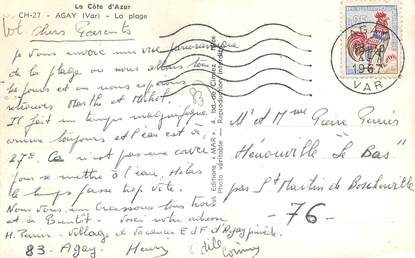 La Côte d'Azur
CH-27 - AGAY (Var) - La plage
chers Parents
Je vous envoie une vue panoramique
de la plage ou nous allons tous
les jours et ou nous espérons
retrouver Marthe et Michel.
Il fait un temps magnifique
comme toujours et l'eau est à
27°. Ce n'est pas une corvée
pour se mettre à l'eau. Hélas
le temps passe trop vite.
Nous vous embrassons tous trois
et à Bientôt. Voici notre adresse
H. Village de Vacances EDF d'Agay
83 - Agay. Henri
Odile
Corinne
83
Editions "MAR"
Photo véritable - Reproduction interdite
1967
VAR
Mr et Mme Pierre
Hénouville "Le Bas"
par St Martin de Boscherville
- 76 -